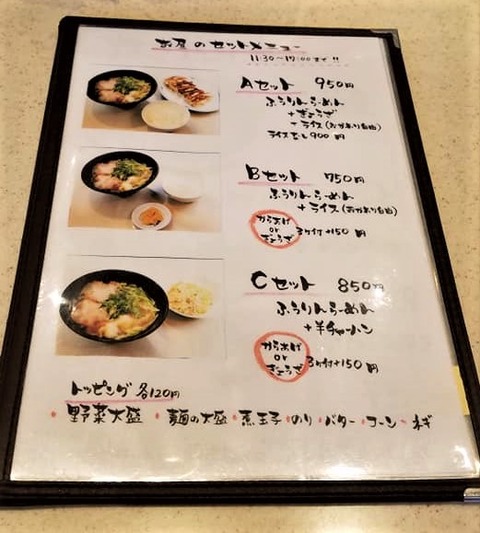 お昼のセットメニュー
11:30〜17:00まで!!
Aセット 950円
ふうりんらーめん
+ぎょうざ
+ライス(おかわり自由)
ライスなし900円
Bセット 750円
ふうりんらーめん
+ライス(おかわり自由)
からあげ
or
ぎょうざ
3ヶ付+150円
Cセット 850円
ふうりんらーめん
+半チャーハン
からあげ
or
ぎょうざ
3ヶ付+150円
トッピング 各120円
・野菜大盛・麺の大盛・煮玉子・のり・バター・コーン・ネギ